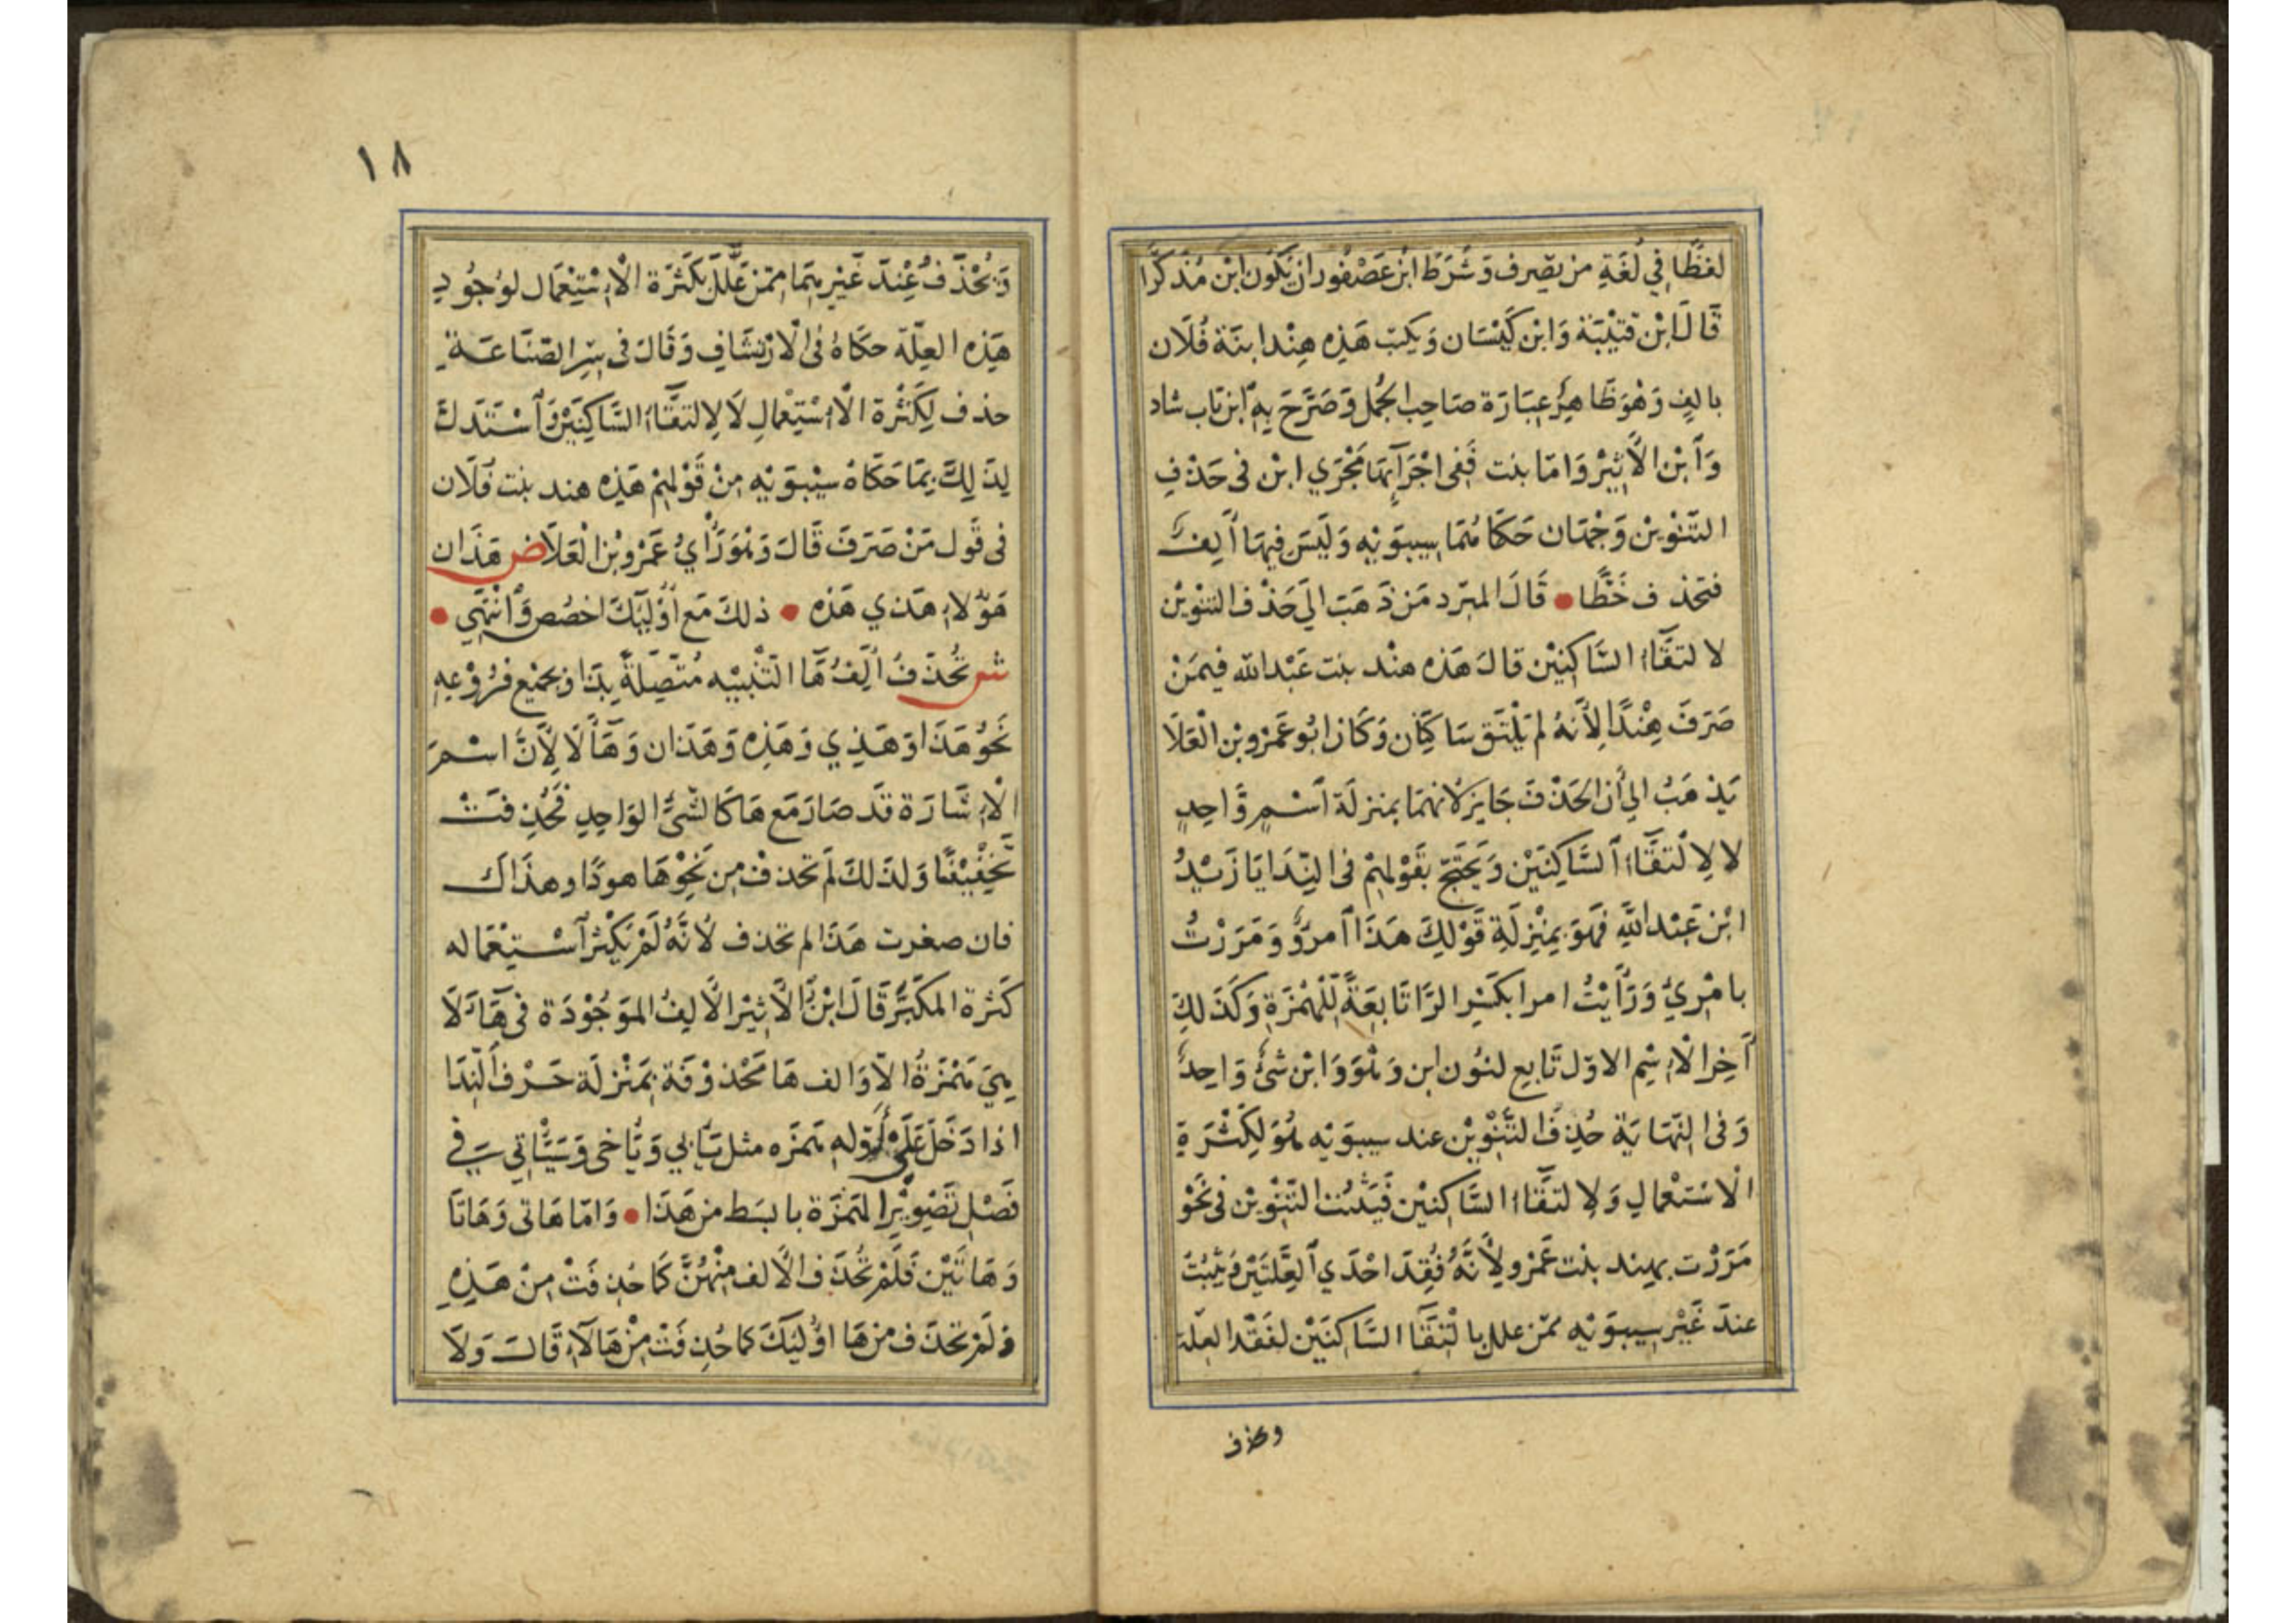 لفظًا في لُغَةِ من يصّرف وَشَرَطَ ابن عَصْفُور ان يَكُونَ ابْن مُذَكَّرًا
قَالَ ابْن قتَيْبَة وَابْن كَيْسَان وَيكتب هَذِه هِنْد ابنَة فُلَان
بالفٍ وَهْوَ ظَاهِرُ عِبَارَة صَاحِب الجُمل وَصَرَّحَ بِهِ ابن بَاب شاد
وَابْن الأَثِيْر وَامّا بنت فَفِى اجْرَآئِهَا مَجْرَي ابْن فى حَذْفِ
التَّنْوِيْن وَجْهَان حَكَاهُمَا سِيبوَيْهِ وَلَيْسَ فِيهَا أَلِفٌ
فتحذف خَطًّا • قَالَ المبّرد مَن ذَهَبَ الَى حَذْف التنوِيْن
لا لتقَآءِ السَّاكِنِيْن قالَ هَذه هنْد بنت عَبْد الله فيمَنْ
صَرَفَ هِنْدًا لِأَنهُ لم يَلْتَق سَاكِنَان وَكَان ابُو عَمْرو بْن الْعَلَا
يَذهَبُ الي أن الحَذْفَ جَايز لانهمَا بمنزلَة اسْمٍ وَاحِدٍ
لا لِالْتقَآءِ السَّاكِنَيْن وَيَحْتَجّ بقَوْلِهِمْ فى النِّدَا يَا زَيْدُ
ابْن عَبْد اللَّهِ فَهُوَ بِمَنْزِلَةِ قَوْلِكَ هَذَا امرؤٌ وَمَرَرْتُ
بامْرِيٍ وَرَأَيْتُ امرا بكَسْرِ الرَّا تَابعَةً لِلْهَمْزَةِ وَكَذَلِكَ
آخِر الْاِسْمِ الاوّل تَابِع لنُون ابن وَهُوَ وَابْن شَئٌ وَاحِدٌ
وَفى النّهَايَة حُذِفَ التَّنْوِيْن عند سيبوَيْه هُوَ لِكَثْرَةِ
الْاسْتعْمالِ وَلِالتقَآءِ السَّاكِنيْن فَيَثبُت التّنْوِيْن فى نَحْو
مَرَرْت بهِند بنت عَمْرو لِأَنَّهُ فُقِدَ احْدَي الْعِلَّتَيْن وَيَثبُتُ
عندَ غَيْر سِيبوَيْه ممّن علل بالْتِقَا السَّاكِنَيْن لفَقْد العلة
وىحذف
١٨
وَيُحْذَفُ عِنْدَ غَيْرِهِمَا مِمّن عَلَّلَ بكَثرَة الْاِسْتِعْمَال لوُجُودِ
هَذِه العِلّة حكَاهُ فى الْارْتِشَافِ وَقَالَ فى سِرِ الصّنَاعَةِ
حذف لِكَثْرَة الْاِسْتِعْمالِ لَا لِالتقَآءِ السَّاكِنَيْن وَاسْتَدَلَّ
لِذَلِكَ بمَا حَكَاهُ سِيْبوَيْهِ مِنْ قَوْلِهِمْ هَذِه هند بنت فُلَان
فى قَول مَنْ صَرَفَ قَالَ وَهُوَ رَأْيُ عَمْرو بْن الْعَلَا ض هَذَان
هَؤلاءِ هَذي هَذه • ذلكَ مَع أُوْلَيِكَ اخصُص وَانْتَهِي •
ش تُحْذَفُ أَلِفُ هَا التَّنْبِيْه مُتّصِلَةً بِذَا وَبجَمِيْع فرُوْعِهِ
نَحْوُ هَذَا وَهَذِي وَهَذِه وَهَذَان وَهَآؤُلَا لِأَنَّ اسْمَ
الْاِشَارَة قَد صَارَ مَع هَا كَالشَّئِ الوَاحِدِ فَحُذِفَتْ
تَخْفِيْفًا وَلذَلكَ لَم تحْذف مِن نَحِوْهَا هوذَا وهذاك
فان صغرت هَذَا لم تحذف لأَنَّهُ لَمْ يَكْثر اسْتِعْمَاله
كَثرة المكَبّر قَالَ ابْنُ الأَثيْر الأَلِفُ المَوْجُوْدَة فى هَآؤلَا
هِيَ هَمْزَةُ الآوَالف هَا مَحْذوْفَة بِمَنْزلَة حَرْف النِدَا
اذا دَخَلَ عَلَى أوّله هَمزَه مثل يَأبي وَيَأخى وَسَيَأْتي في
فَصْلِ تَصْوِيْرِ الهَمْزَة بابسَط من هَذَا • وَامّا هَاتى وَهَاتَا
وَهَاتَيْن فَلَمْ تُحْذَف الأَلف مِنْهُنَّ كَما حُذِفَتْ مِنْ هَذِهِ
وَلَمْ تحذَف من هَا اوُلَيكَ كما حُذِفَتْ مِنْ هَالآءِ قَالَ وَلَا